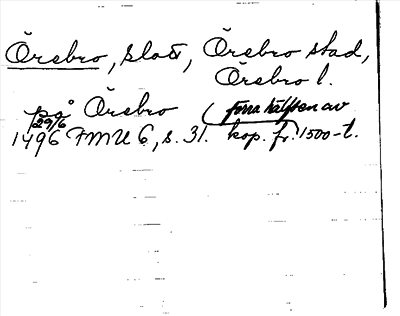 Örebro, slott, Örebro stad,
Örebro l.
på Örebro (förra hälften av
29/6
1496 FMU 6, s. 31. kop. fr. 1500-t.